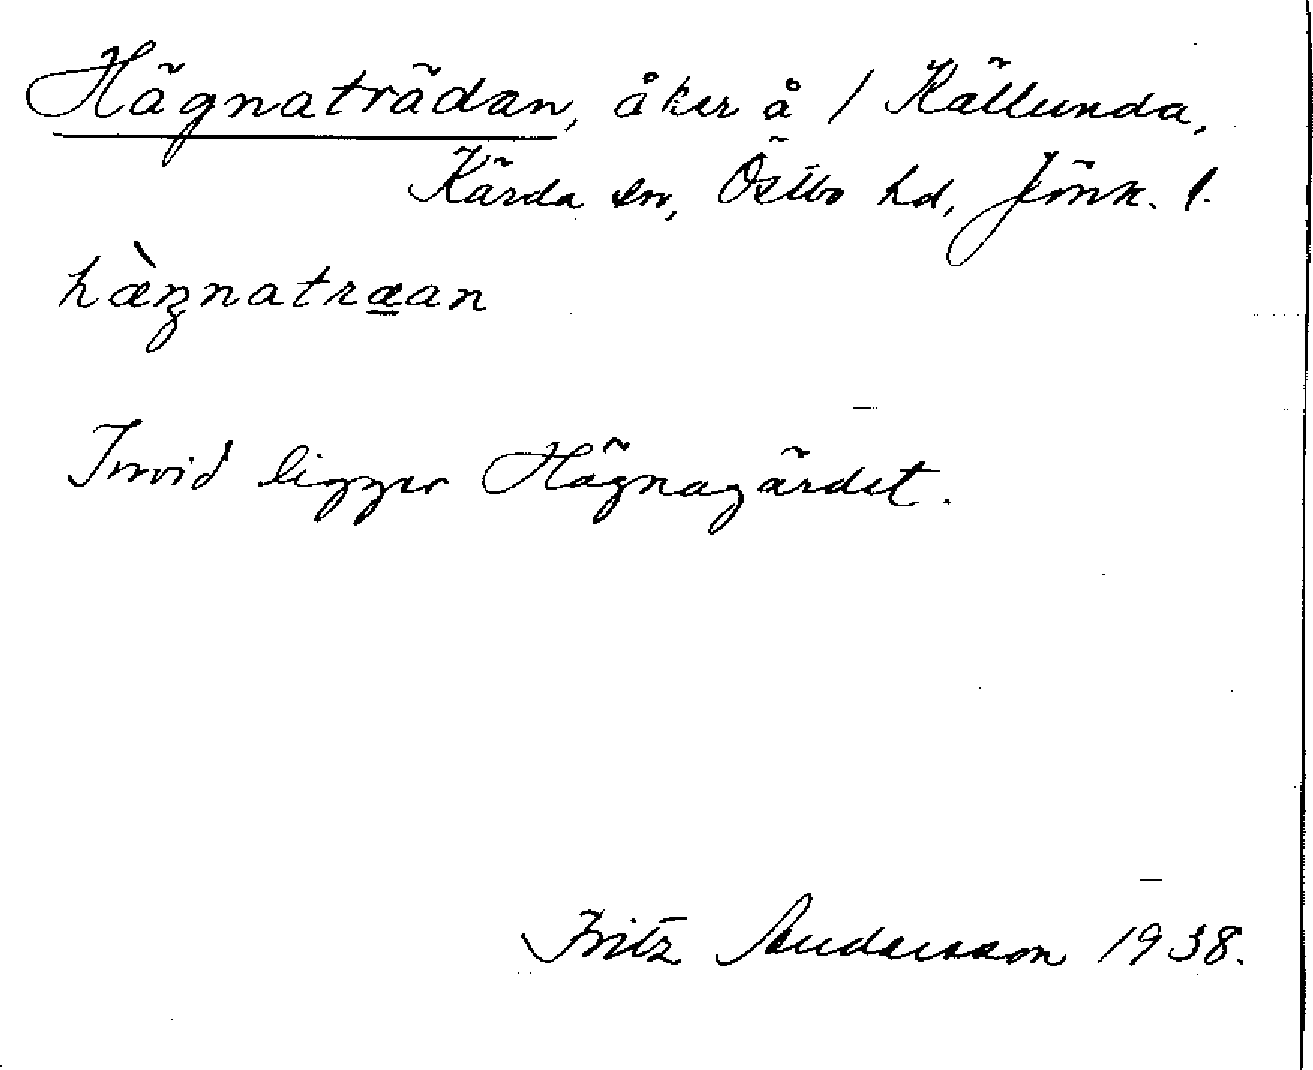 Hägnaträdan, åker å 1 Källunda,
Kärda sn, Östbo hd, Jönk. l.
hæ̀gnatræ̲an
Invid ligger Hägnagärdet.
Fritz Andersson 1938.